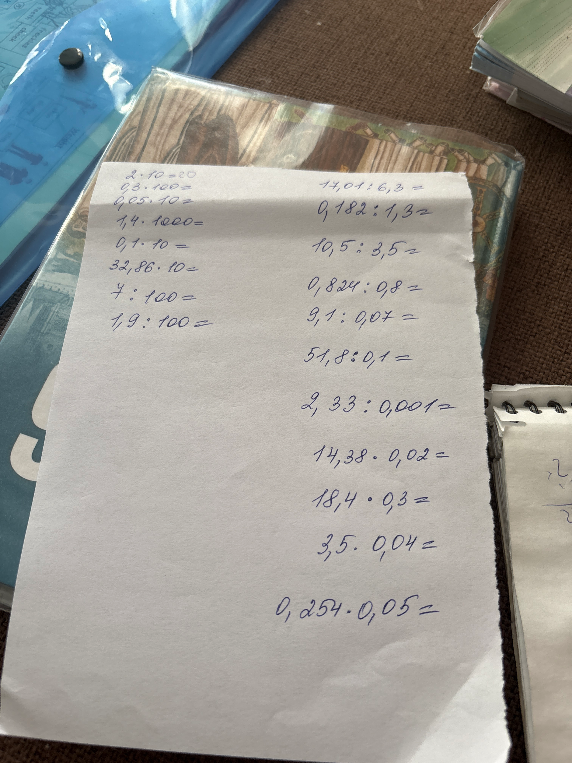 2·10=20
0,3·100=
0,05·10=
1,4·1000=
0,1·10=
32,86·10=
7:100=
1,9:100=
17,01:6,3=
0,182:1,3=
10,5:3,5=
0,824:0,8=
9,1:0,07=
51,8:0,1=
2,33:0,001=
14,38·0,02=
18,4·0,3=
3,5·0,04=
0,254·0,05=